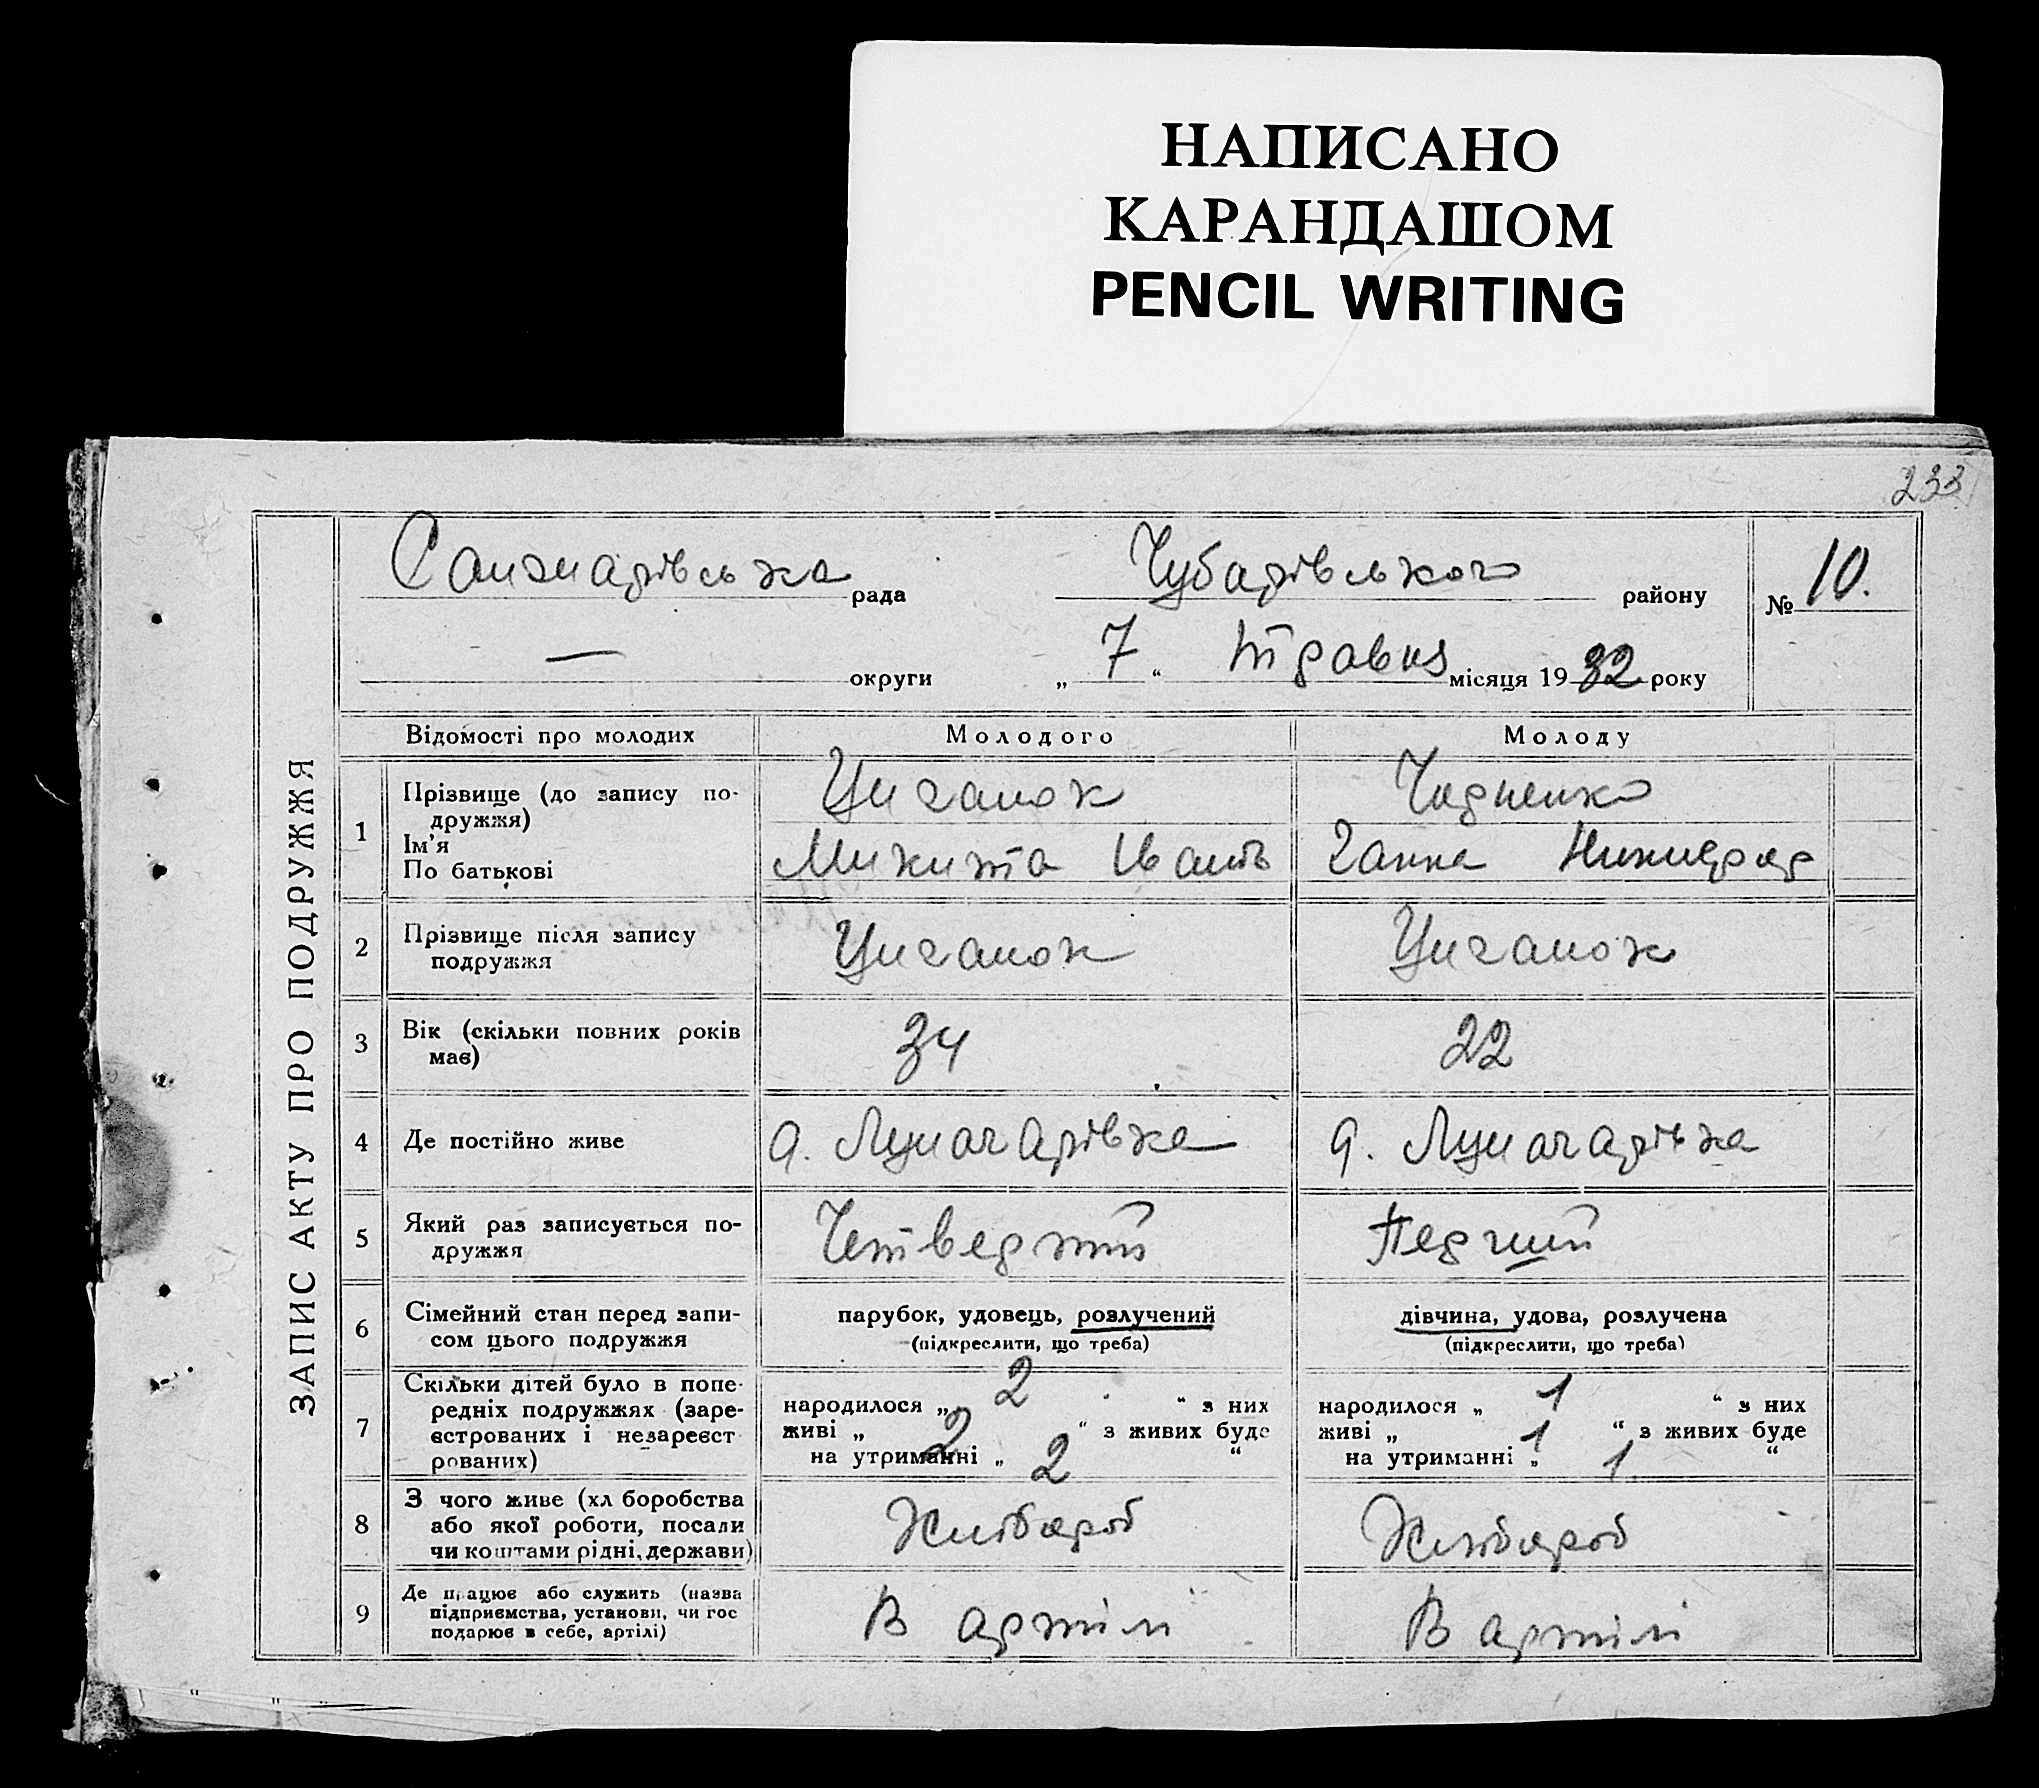 НАПИСАНО
КАРАНДАШОМ
PENCIL WRITING
233
ЗАПИС АКТУ ПРО ПОДРУЖЖЯ
Санжарівська рада Чубарівського району № 10.
— округи „ 7 “ травня місяця 1932 року
Відомості про молодих Молодого Молоду
1 Прізвище (до запису по-
дружжя)
Ім’я
По батькові
Циганок
Микита Іван
Ганна
2 Прізвище після запису
подружжя
Циганок
Циганок
3 Вік (скільки повних років
має)
34
22
4 Де постійно живе
Луначарівка
Луначарівка
5 Який раз записується по-
дружжя
Четвертий
Перший
6 Сімейний стан перед запи-
сом цього подружжя
парубок, удовець, розлучений
(підкреслити, що треба)
дівчина, удова, розлучена
(підкреслити, що треба)
7 Скільки дітей було в попе-
редніх подружжях (заре-
єстрованих і незареєст
рованих)
народилося „ 2 “ з них
живі „ 2 “ з живих буде
на утриманні „ 2 “
народилося „ 1 “ з них
живі „ 1 “ з живих буде
на утриманні „ 1 “
8 З чого живе (хл боробства
або якої роботи, посади
чи коштами рідні, держави)
Хлібороб
Хлібороб
9 Де працює або служить (назва
підприємства, установи, чи гос
подарює в себе, артілі)
В артілі
В артілі